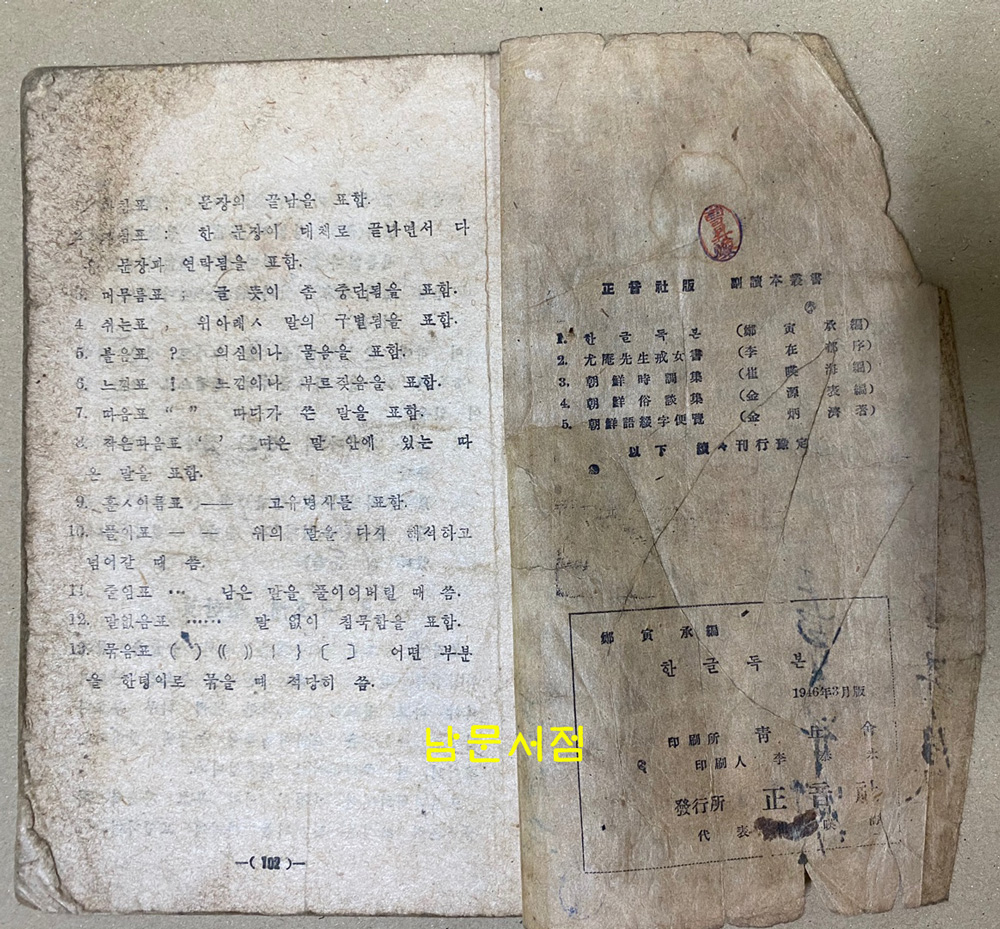 마침표 . 문장의 끝남을 표함.
표 : 한 문장이 대체로 끝나면서 다
문장과 연락됨을 표함.
3. 머무름표 ; 글 뜻이 좀 중단됨을 표함.
4. 쉬는표 , 위아래ㅅ 말의 구별됨을 표함.
5. 물음표 ? 의심이나 물음을 표함.
6. 느낌표 ! 느낌이나 부르짖음을 표함.
7. 따옴표 “ ” 따다가 쓴 말을 표함.
8. 작은따옴표 ‘ ’ 따온 말 안에 있는 따
온 말을 표함.
9. 홀ㅅ이름표 —— 고유명사를 표함.
10. 풀이표 — — 위의 말을 다시 해석하고
넘어갈 때 씀.
11. 줄임표 … 남은 말을 풀이어버릴 때 씀.
12. 말없음표 …… 말 없이 침묵함을 표함.
13. 묶음표 ( ) (( )) { } 〔 〕 어떤 부분
을 한덩이로 묶을 때 적당히 씀.
—( 102 )—
正音社版 副讀本叢書
1. 한글독본 (鄭寅承編)
2. 尤庵先生戒女書 (李在郁序)
3. 朝鮮時調集 (崔暎海編)
4. 朝鮮俗談集 (金源表編)
5. 朝鮮語綴字便覽 (金炳濟著)
以下 續々刊行豫定
鄭寅承編
한글독본
1946年3月版
印刷所 靑年會
印刷人 李
發行所 正音社
代表
남문서점